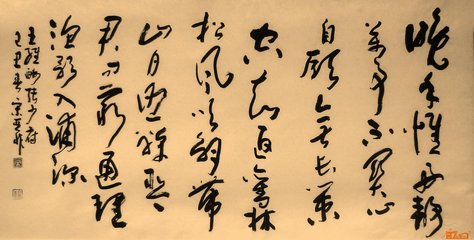 晚年惟好靜
萬事不關心
自顧無長策
空知返舊林
松風吹解帶
山月照彈琴
君問窮通理
漁歌入浦深
王維酬張少府